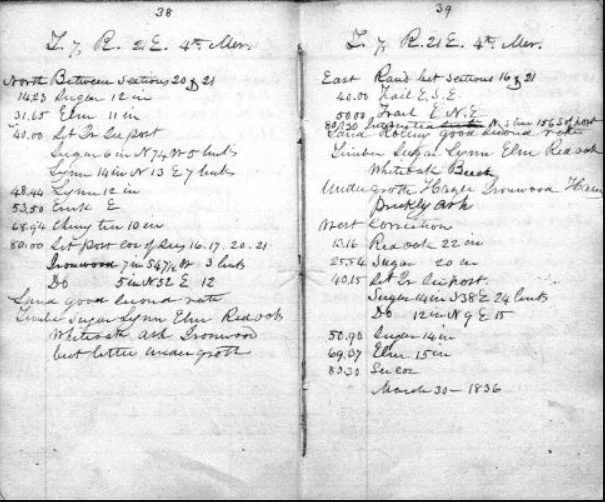 38
T. 7, R. 21E. 4th Mer.
North Between Sections 20 & 21
1423 Sugar 12 in
31.65 Elm 11 in
40.00 Set Qr Sec post
Sugar 6 in N 74 W 5 links
Lynn 14 in N 13 E 7 links
48.44 Lynn 12 in
53.50 Creek E
68.94 Cherry tree 10 in
80.00 Set post Cor of Secs 16. 17. 20. 21
Ironwood 7 in S 47½ W 3 links
Do 5 in N 32 E 12
Land good second rate
Timber Sugar Lynn Elm Red oak
White oak Ash Ironwood
but little undergroth
39
T. 7, R. 21E. 4th Mer.
East Rand bet sections 16 & 21
40.00 Trail E. S. E
50.00 Trail E. N. E
80.30 Intersected N & S line 156 S of post
Land Rolling good second rate
Timber Sugar Lynn Elm Red oak
White oak Beech
Undergroth Hazle Ironwood
Prickly Ash
West Correction
13.16 Red oak 22 in
25.54 Sugar 20 in
40.15 Set Qr Sec post.
Sugar 14 in S 38 E 24 links
Do 12 in N 9 E 15
50.90 Sugar 14 in
69.07 Elm 15 in
80.30 Sec cor
March 30 - 1836